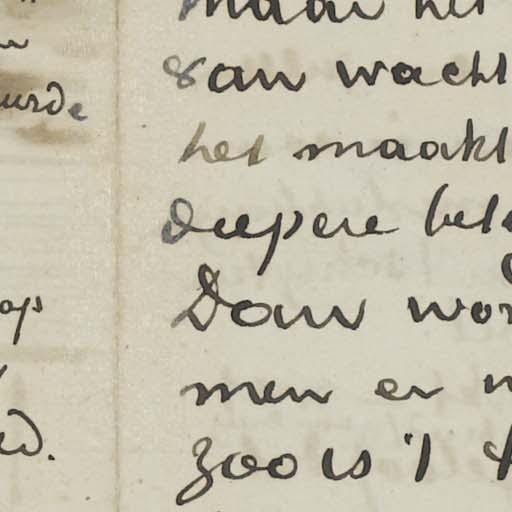 maar het
dan wacht
het maakt
diepere bet
Dan wor
men er
zoo is 't
urde
op
ed.